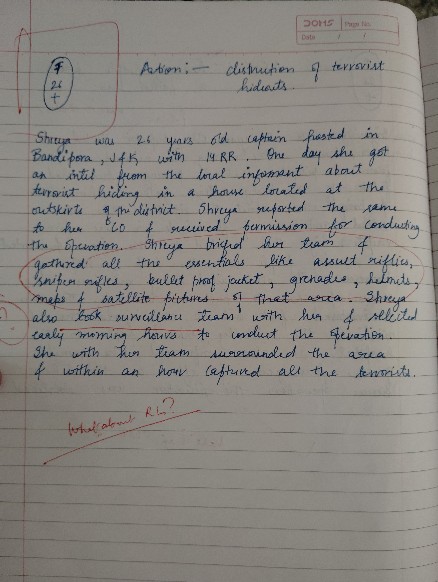 DOMS Page No.
Date / /
F
26
+
Action:- distruction of terrorist
hideouts
Shreya was 26 years old captain posted in
Bandipora, J&K with 14 RR. One day she got
an intel from the local informant about
terrorist hiding in a house located at the
outskirts of the district. Shreya reported the same
to her CO & received permission for conducting
the operation. Shreya brifed her team &
gathered all the essentials like assult riflies,
sniper rifles, bullet proof jacket, grenades, helmets,
maps & satellite pictures of that area. Shreya
also took surveillance team with her & sellected
early morning hours to conduct the operation.
She with her team surrounded the area
& within an hour captured all the terrorists.
What about RL?